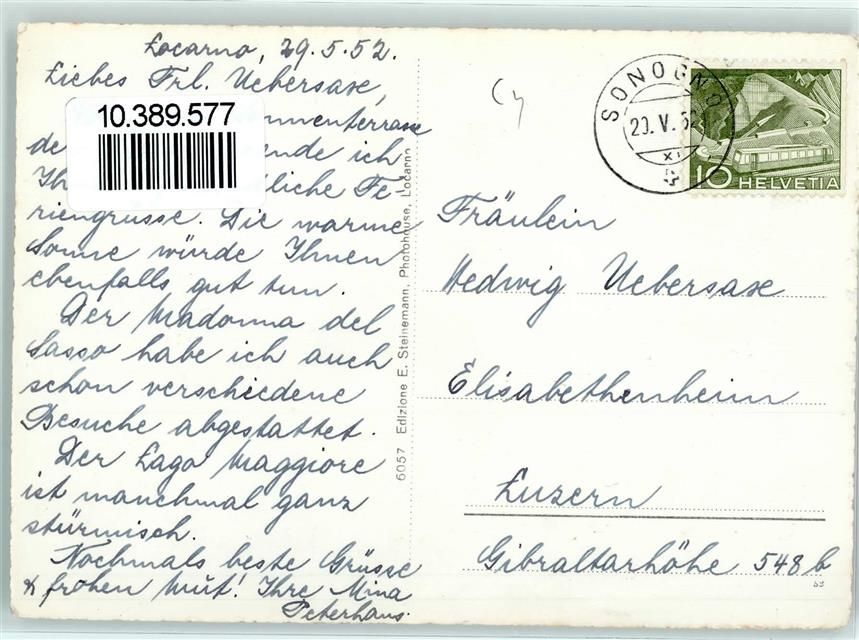 Locarno, 29.5.52.
Liebes Frl. Uebersaxe,
10.389.577
nnenterrasse
de ende ich
Ih liche Fe-
riengrüsse. Die warme
Sonne würde Ihnen
ebenfalls gut tun.
Der Madonna del
Sasso habe ich auch
schon verschiedene
Besuche abgestattet.
Der Lago Maggiore
ist manchmal ganz
stürmisch.
Nochmals beste Grüsse
& frohen Mut! Ihre Mina
Peterhans.
6057 Edizione E. Steinemann, Photohouse, Locarno
SONOGNO
XI
10 HELVETIA
Fräulein
Hedwig Uebersaxe
Elisabethenheim
Luzern
Gibraltarhöhe 548b